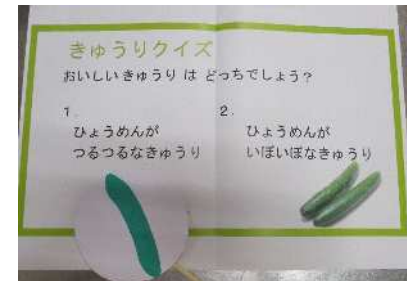 きゅうりクイズ
おいしいきゅうり は どっちでしょう？
1.
ひょうめんが
つるつるなきゅうり
2.
ひょうめんが
いぼいぼなきゅうり